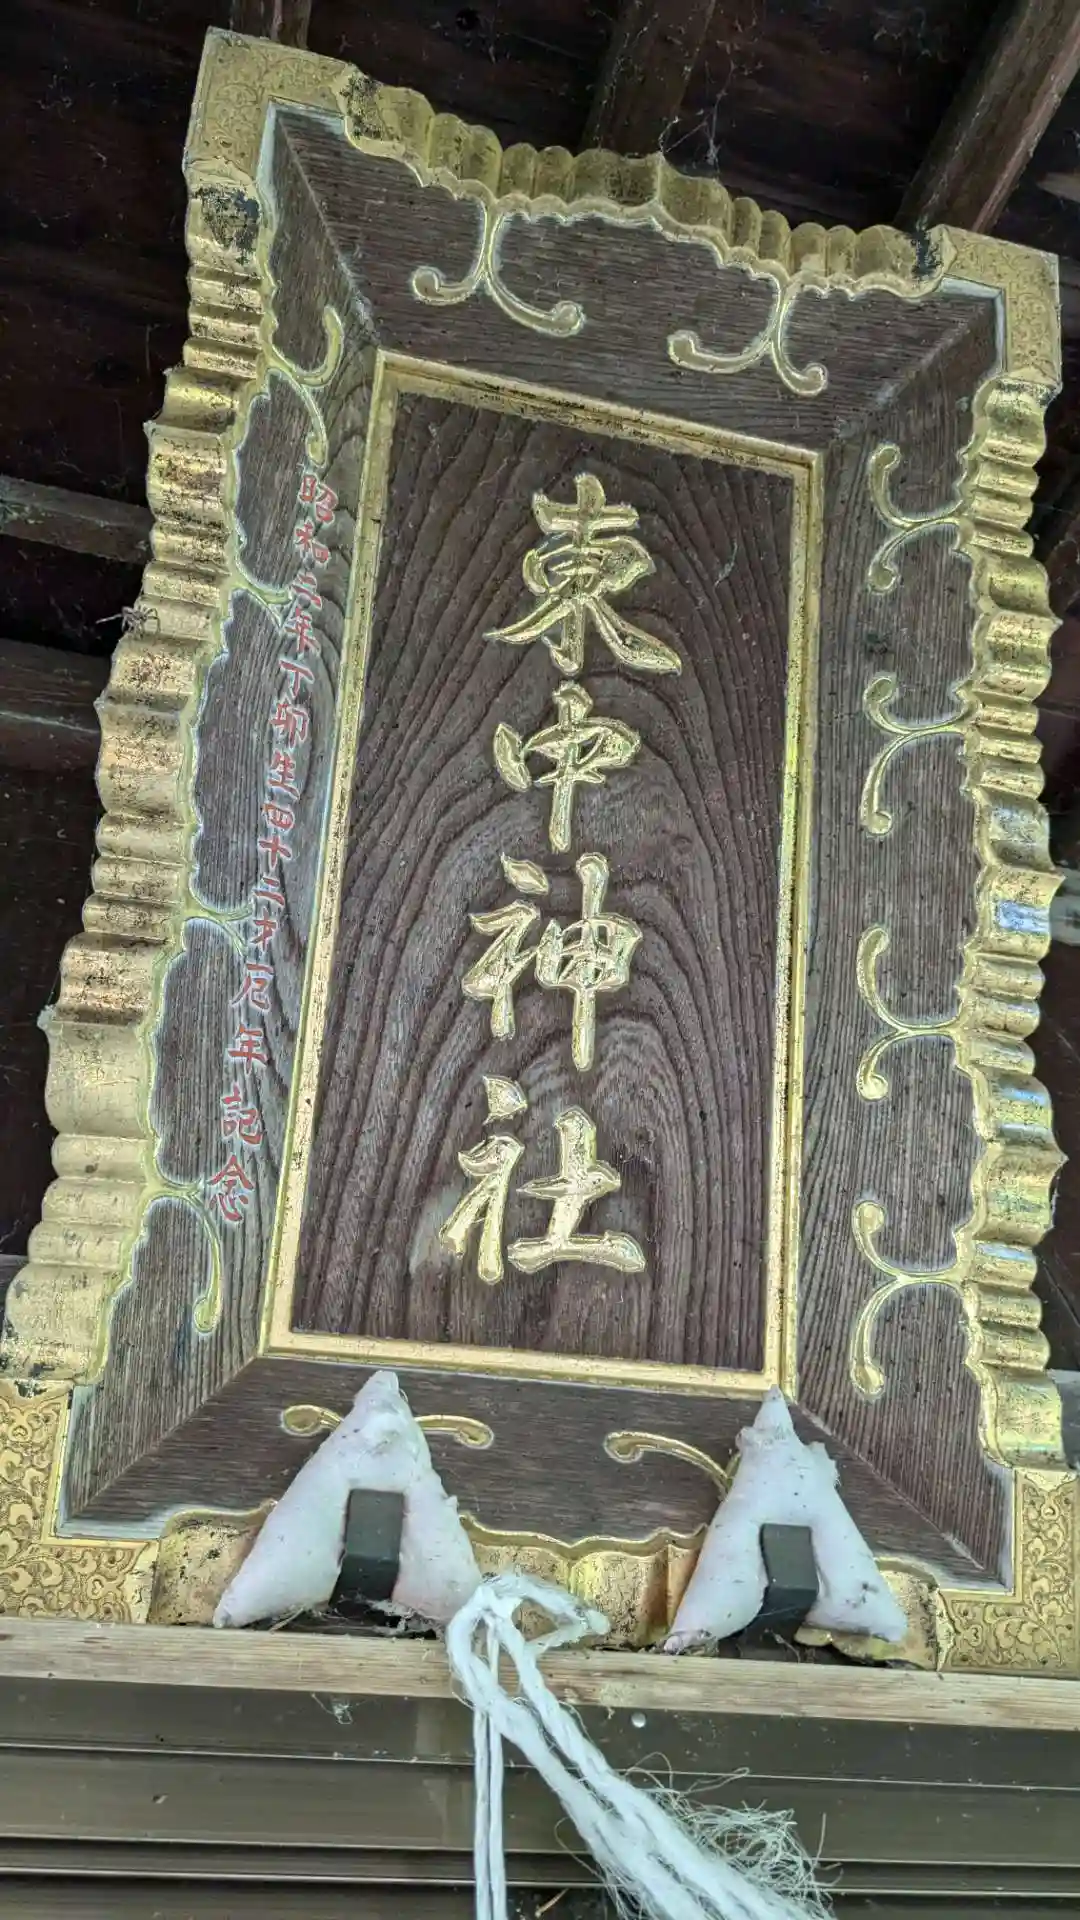 東中神社
昭和二年丁卯生四十二才厄年記念